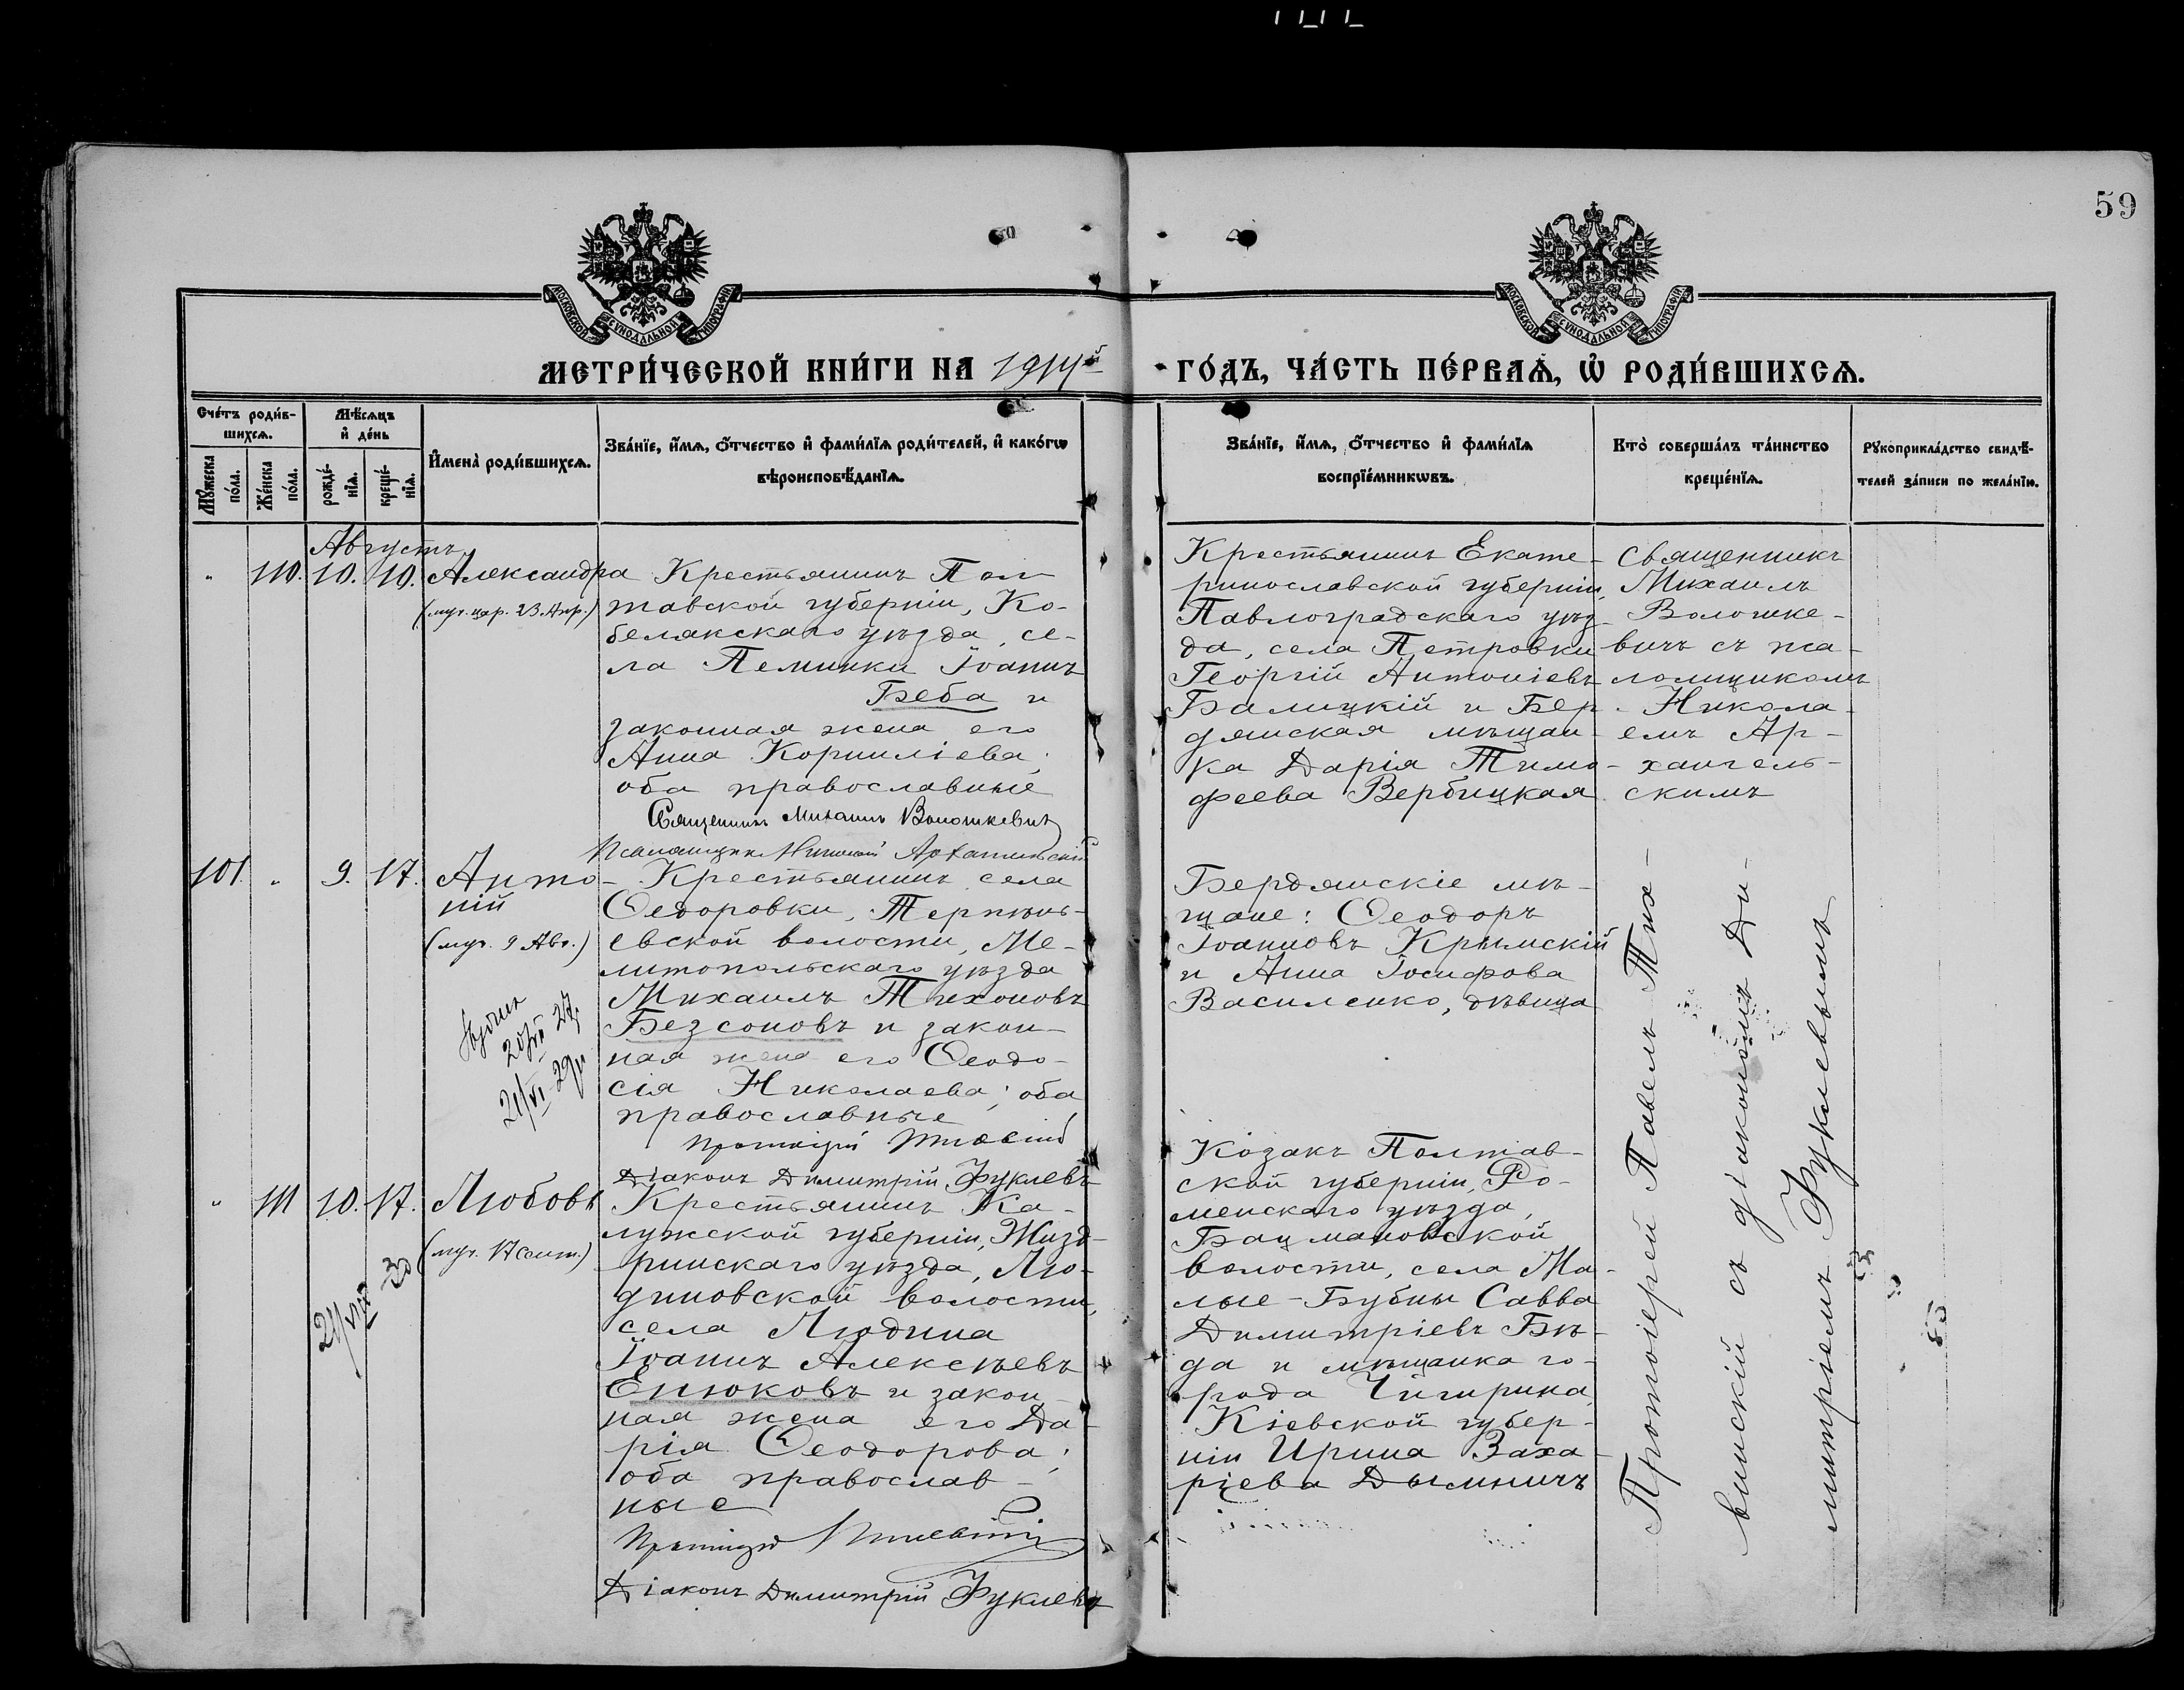 59
МОСКОВСКОЙ СУНОДАЛЬНОЙ ТИПОГРАФІИ
МОСКОВСКОЙ СУНОДАЛЬНОЙ ТИПОГРАФІИ
МЕТРИ́ЧЕСКОЙ КНИ́ГИ НА 1914й ГО́ДЪ, ЧА́СТЬ ПЕ́РВАѦ, Ѡ҆ РОДИ́ВШИХСѦ.
Сче́тъ роди́в-
шихсѧ.
Мꙋ́жеска по́ла.
Же́нска по́ла.
Мѣ́сѧцъ
и҆ де́нь
рожде́-
нїѧ.
креще́-
нїѧ.
И҆мена̀ роди́вшихсѧ.
Зва́нїе, и҆́мѧ, ѻ҆́тчество и҆ фами́лїѧ роди́телей, и҆ како́гѡ
вѣроисповѣ́данїѧ.
Зва́нїе, и҆́мѧ, ѻ҆́тчество и҆ фами́лїѧ
воспрїе́мникѡвъ.
Кто̀ соверша́лъ та́инство
креще́нїѧ.
Рꙋкоприкла́дство свидѣ́-
телей за́писи по жела́нїю.
Августъ
" 110. 10. 10. Александра
(муч. цар. 23 Апр.)
Крестьянинъ Пол
тавской губерніи, Ко-
белякскаго уѣзда, се-
ла Іоаннъ
Беба и
законная жена его
Анна Корниліева;
оба православные
Священникъ Михаилъ Волошкевичъ
Псаломщикъ Николай Архангельскій
Крестьянинъ Екате-
ринославской губерніи,
Павлоградскаго уѣз-
да, села Петровки
Георгій Антоніевъ
Балицкій и Бер-
дянская мѣщан-
ка Дарія Тимо-
феева Вербицкая
Священникъ
Михаилъ
Волошке-
вичъ съ пса-
ломщикомъ
Никола-
емъ Ар-
хангель-
скимъ
101. " 9. 17. Анто-
ній
(муч. 9 Авг.)
27
21/VI 29
Крестьянинъ села
Ѳедоровки, Терпѣнь-
евской волости, Ме-
литопольскаго уѣзда
Михаилъ Тихоновъ
Безсоновъ и закон-
ная жена его Ѳеодо-
сія Николаева; оба
православные
Протоіерей Тихвинскій
Діаконъ Димитрій Фуклевъ
Бердянскіе мѣ-
щане: Ѳеодоръ
Іоанновъ Крымскій
и Анна Іосифова
Василенко, дѣвица
" 111 10. 17. Любовь
(муч. 17 сент.)
Крестьянинъ Ка-
лужской губерніи, Жизд-
ринскаго уѣзда, Лю-
диновской волости,
села Людина
Іоаннъ Алексѣевъ
Енюковъ и закон-
ная жена его Да-
рія Ѳеодорова;
оба православ-
ные
Протоіерей Тихвинскій
Діаконъ Димитрій Фуклевъ
Козакъ Полтав-
ской губерніи, Ро-
менскаго уѣзда,
Бацмановской
волости, села Ма-
лые-Бубны Савва
Димитріевъ Бѣ-
да и мѣщанка го-
рода Чигирина,
Кіевской губер-
ніи Ирина Заха-
ріева Дымничъ
Протоіерей Павелъ Тих-
винскій съ діакономъ Ди-
митріемъ Фуклевымъ